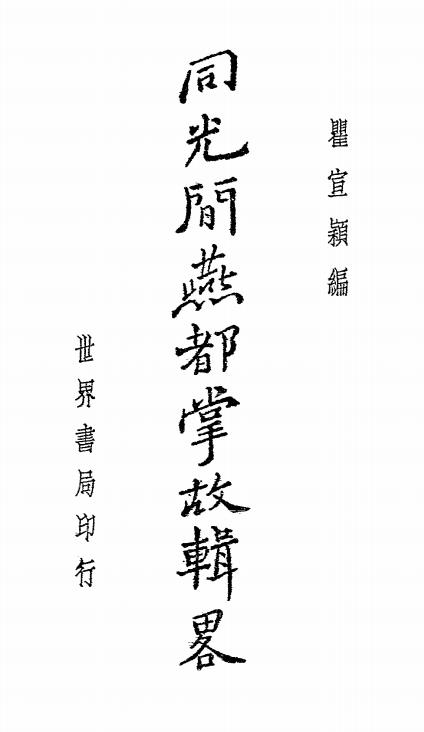 瞿宣穎編
同光間燕都掌故輯畧
世界書局印行